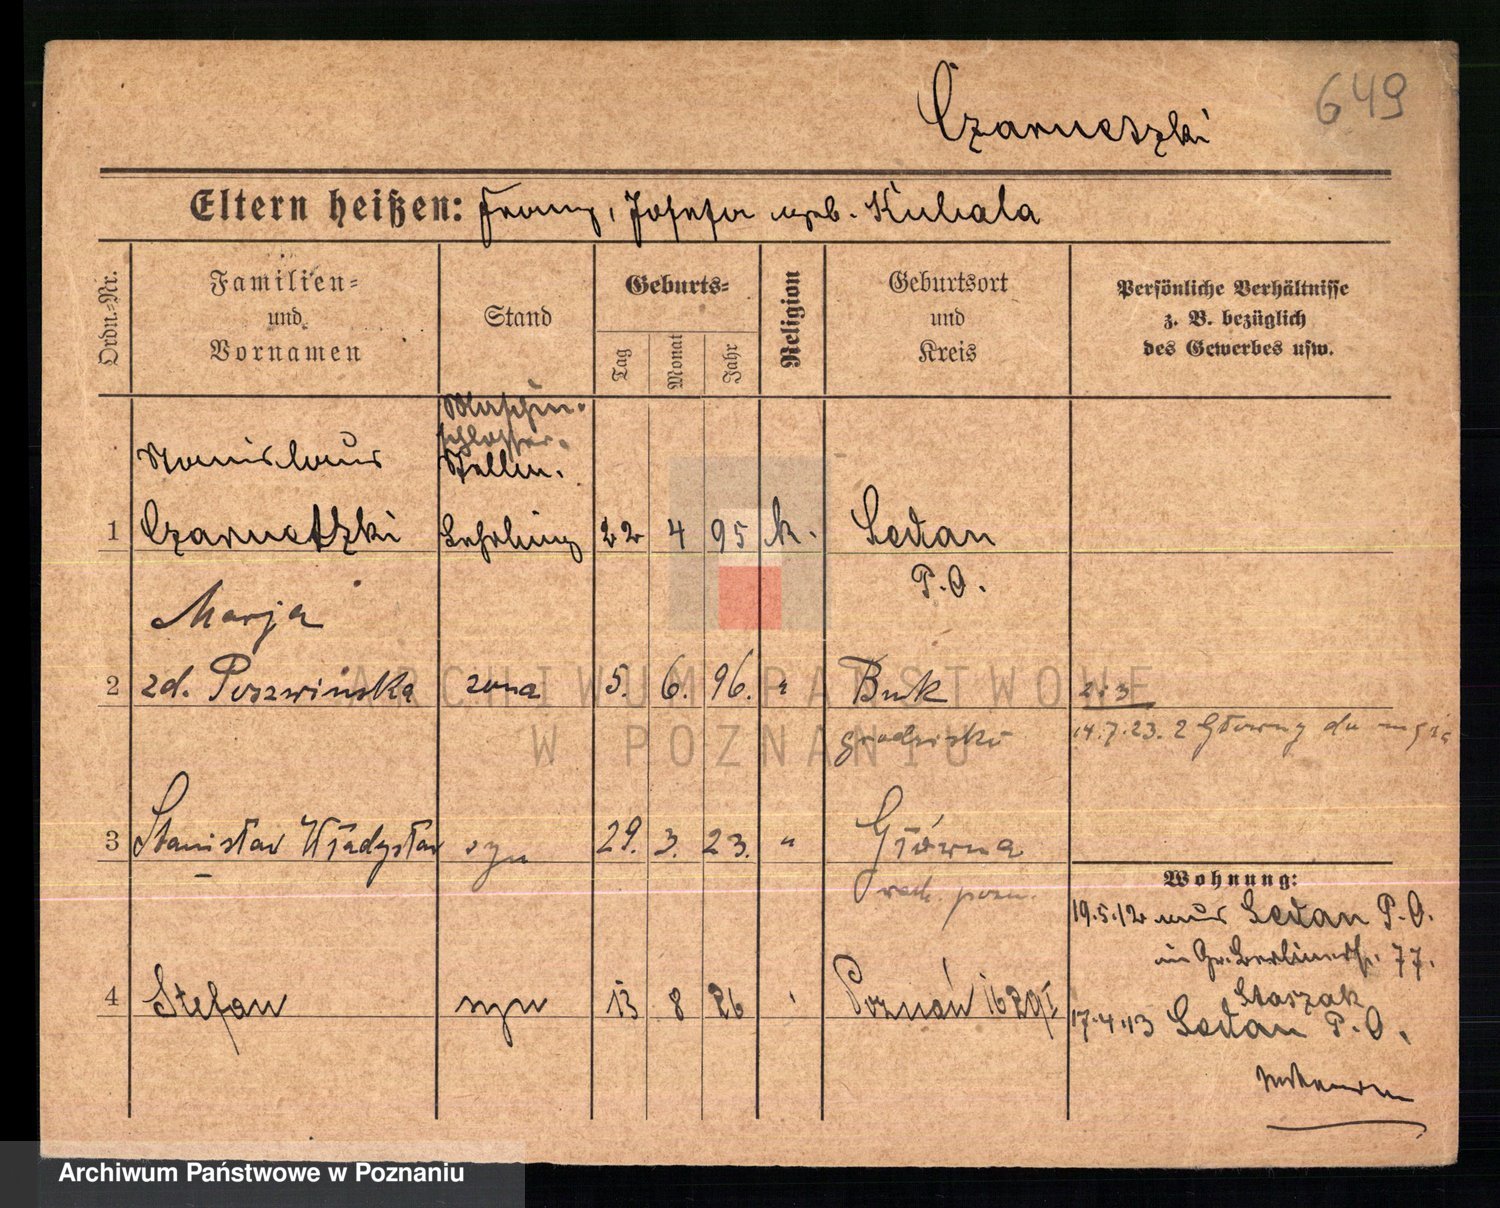 649
Czarneszki
Eltern heißen: Franz, Josefa geb. Kubala
Ordn.-Nr.
Familien-
und
Vornamen
Stand
Geburts-
Tag
Monat
Jahr
Religion
Geburtsort
und
Kreis
Persönliche Verhältnisse
z. B. bezüglich
des Gewerbes usw.
Maschin.
schlosser.
Stanislaus
Stellm.
1 Czarnetzki Lehrling 22 4 95 k. Sedan
P.O.
Marja
2 zd. Poszwińska żona 5. 6. 96. " Buk 2+3
grodzisko 14.7.23. z Główny do
3 Stanisław Władysław syn 29. 3. 23. " Główna
Wohnung:
pozn.
19.5.12 aus Sedan P.O.
Gr. Berlinerstr. 77.
Staszak
4 Stefan syn 13 8 26 " Poznań
17.4.13 Sedan P.O.
ARCHIWUM PAŃSTWOWE
W POZNANIU
Archiwum Państwowe w Poznaniu